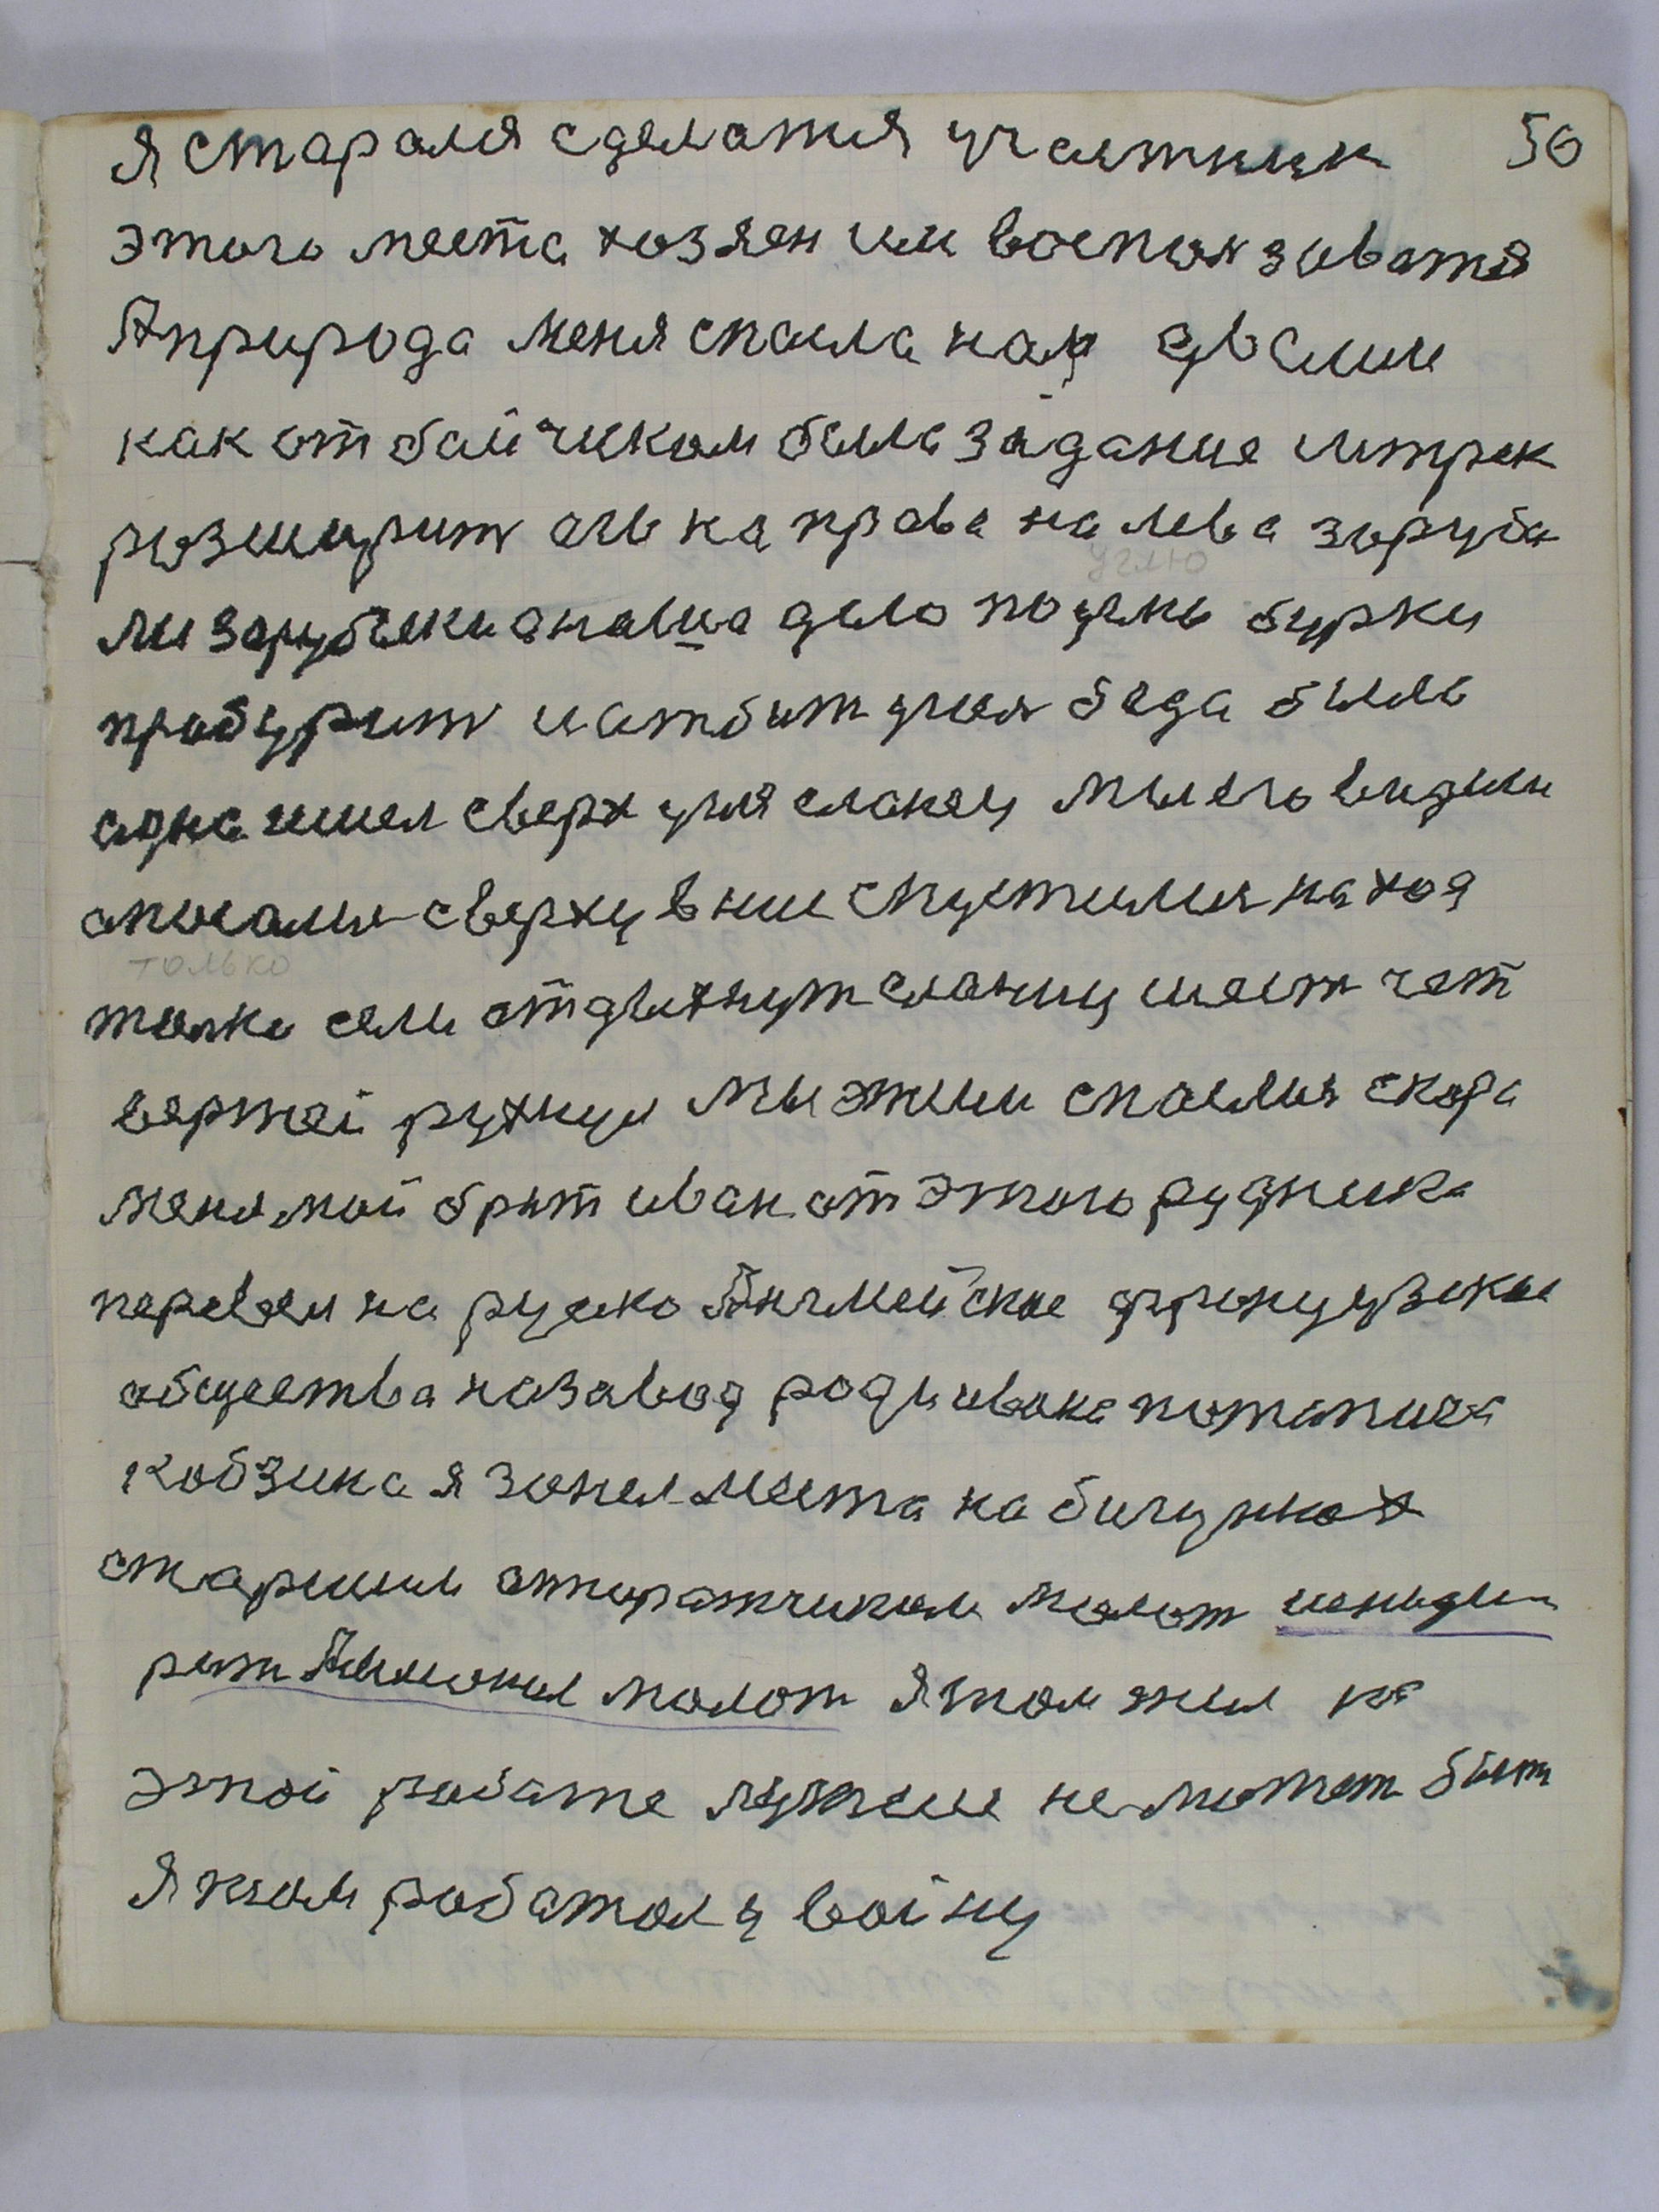 я старался сделатся участник 50
этого места хозяен им воспол зоватся
А природа меня спасла нам двоим
как отбойчиком была задание штрек
розширит его на права на лева заруба
ли зарубки а наша дело по углю бурки
углю
пробурит и отбит угол беда была
одна ишел сверх угля сланец мы его видили
спускался сверху вниз спустился на хоя
только
толко сели отдвихнут сланец шест чет
вертей рухнул мы жили спаслися скора
меня мой брат иван от этого рудника
перевел на руско Англейское французкое
общества на завод роды ивана потапича
Кобзина я занял места на бигунках
старшим аппаратчиком молот
молот я там жил на
этой работе лутчии не может быт
я там работал у войну